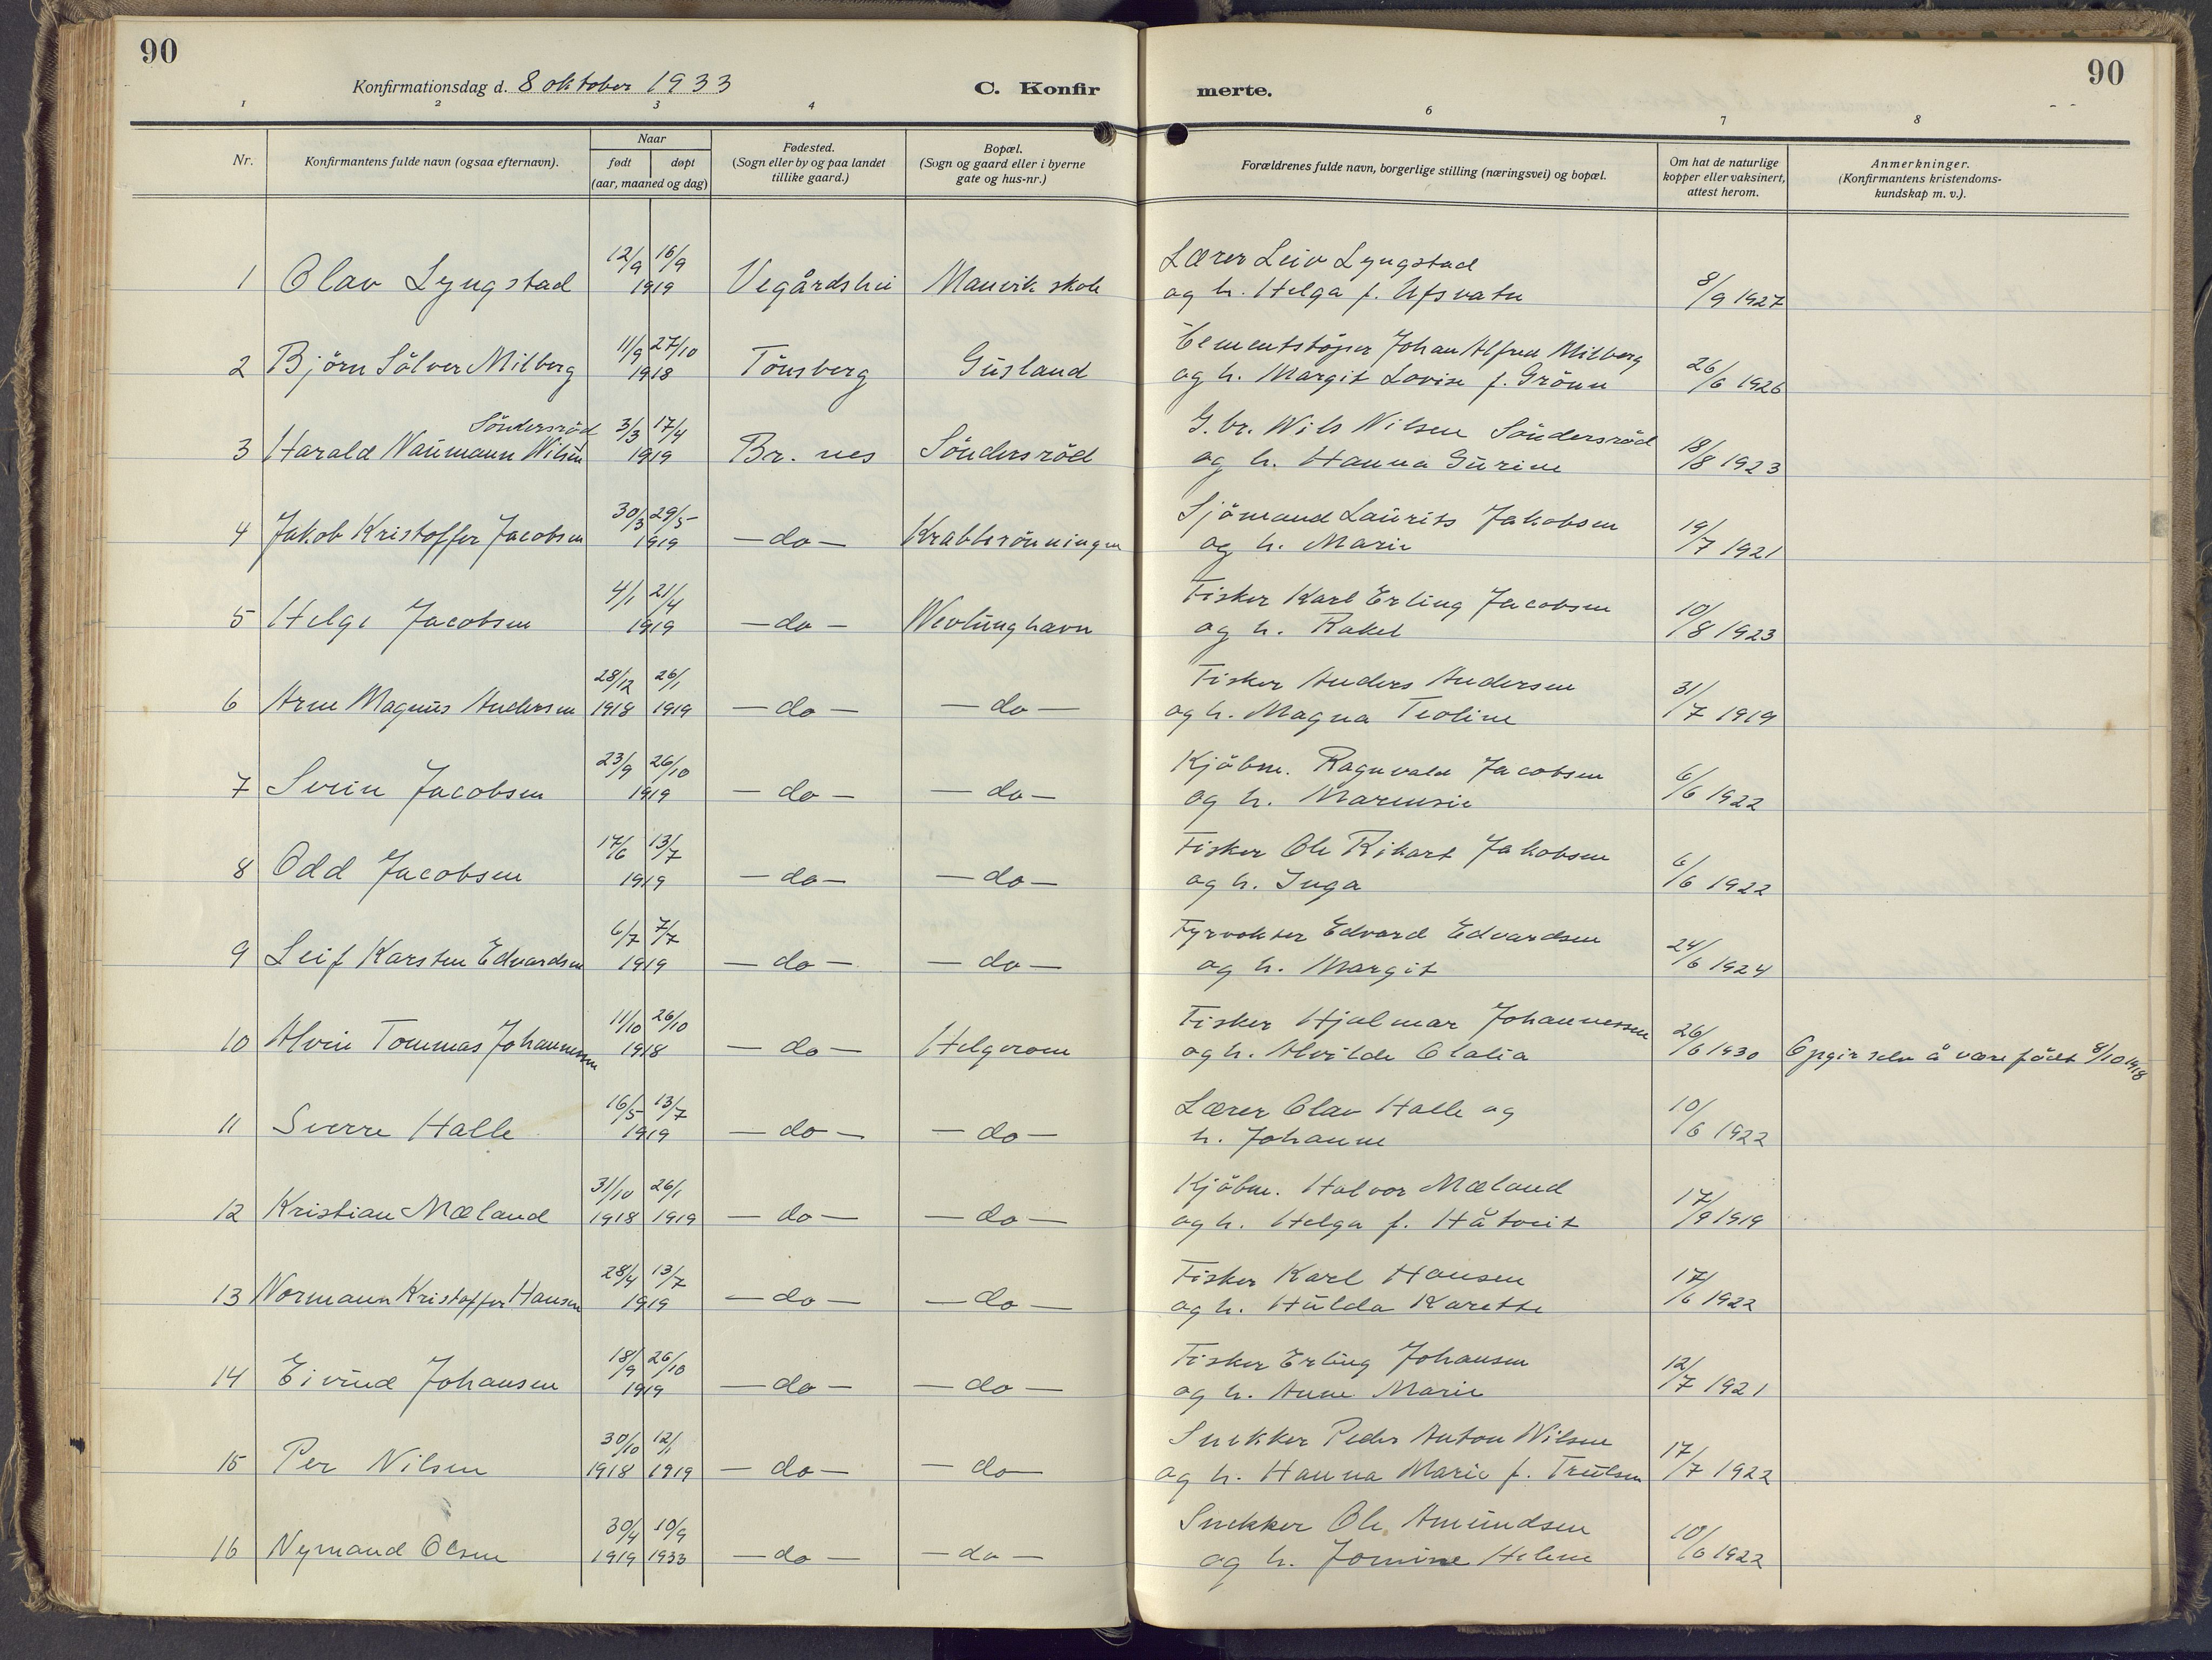 90
Konfirmationsdag d. 8 oktober 1933
C. Konfir
merte.
90
1 2 3 4 6 7 8
Nr.
Konfirmantens fulde navn (ogsaa efternavn).
Naar
født døpt
(aar, maaned og dag)
Fødested.
(Sogn eller by og paa landet
tillike gaard.)
Bopæl.
(Sogn og gaard eller i byerne
gate og hus-nr.)
Forældrenes fulde navn, borgerlige stilling (næringsvei) og bopæl.
Om hat de naturlige
kopper eller vaksinert,
attest herom.
Anmerkninger.
(Konfirmantens kristendoms-
kundskap m. v.).
12/9 16/9 Lærer Leiv Lyngstad
1 Olav Lyngstad 1919 Vegårdshei Manvik skole og h. Helga f. Ufsvatn 8/9 1927
11/9 27/10 Cementstøper Johan Alfred Milberg
2 Björn Sölver Milberg 1918 Tönsberg Gusland og h. Margit Lovise f. Grönn 26/6 1926
Söndersröd 3/3 17/4 G. br. Nils Nilsen Söndersröd
3 Harald Naumann Nilsen 1919 Br. nes Söndersröd og h. Hanna Gurine 18/8 1923
30/3 29/5 Sjömand Laurits Jakobsen
4 Jakob Kristoffer Jacobsen 1919 — do — Krabberönningen og h. Marie 19/7 1921
4/1 21/4 Fisker Karl Erling Jacobsen
5 Helge Jacobsen 1919 — do — Nevlunghavn og h. Rakel 10/8 1923
28/12 26/1 Fisker Anders Andersen
6 Arne Magnus Andersen 1918 1919 — do — — do — og h. Magna Teoline 31/7 1919
23/9 26/10 Kjöbm. Ragnvald Jacobsen
7 Svein Jacobsen 1919 — do — — do — og h. Marensie 6/6 1922
17/6 13/7 Fisker Ole Rikart Jakobsen
8 Odd Jacobsen 1919 — do — — do — og h. Inga 6/6 1922
6/7 7/7 Fyrvokter Edvard Edvardsen
9 Leif Karsten Edvardsen 1919 — do — — do — og h. Margit 24/6 1924
11/10 26/10 Fisker Hjalmar Johannessen
10 Alvin Tommas Johannessen 1918 — do — Helgerom og h. Alvilde Olalia 26/6 1930 Opgir selv å være födt 8/10 1918
16/5 13/7 Lærer Olav Halle og
11 Sverre Halle 1919 — do — — do — h. Johanne 10/6 1922
31/10 26/1 Kjöbm. Halvor Mæland
12 Kristian Mæland 1918 1919 — do — — do — og h. Helga f. Håtveit 17/9 1919
28/4 13/7 Fisker Karl Hansen
13 Normann Kristoffer Hansen 1919 — do — — do — og h. Hulda Karette 17/6 1922
18/9 26/10 Fisker Erling Johansen
14 Eivind Johansen 1919 — do — — do — og h. Anne Marie 12/7 1921
30/10 12/1 Snekker Peder Anton Nilsen
15 Per Nilsen 1918 1919 — do — — do — og h. Hanna Marie f. Trulsen 17/7 1922
30/4 10/9 Snekker Ole Amundsen
16 Nymand Olsen 1919 1933 — do — — do — og h. Jomine Helene 10/6 1922